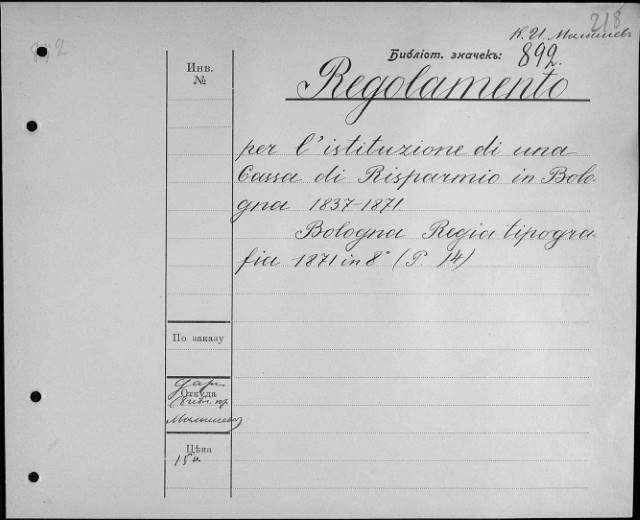 218
К. И. Малышевъ
892
Библіот. значекъ: 892.
Инв.
№
Regolamento
per l'istituzione di una
Cassa di Risparmio in Bolo-
gna 1837-1871
Bologna Regia tipogra-
fia 1871 in 8° (P. 14)
По заказу
Откуда
Малышева
Цѣна
15 к